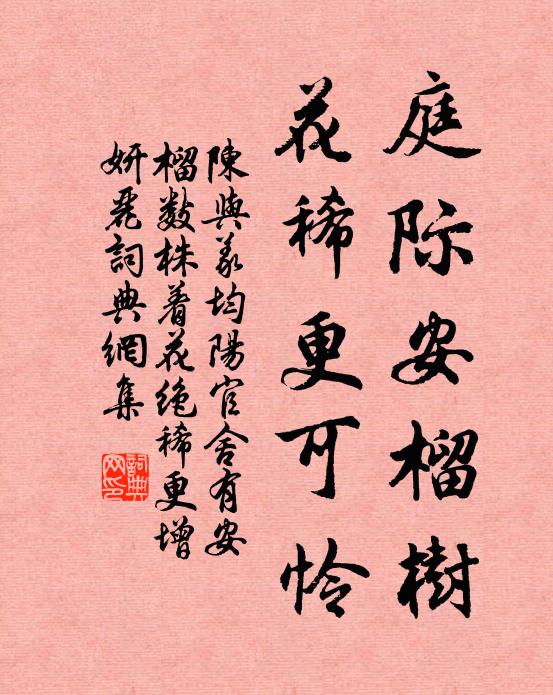 庭际安榴樹
花稀更可怜
陳與義均陽官舍有安
榴数株着花绝稀更增
妍麗詞典網集
詞典網印